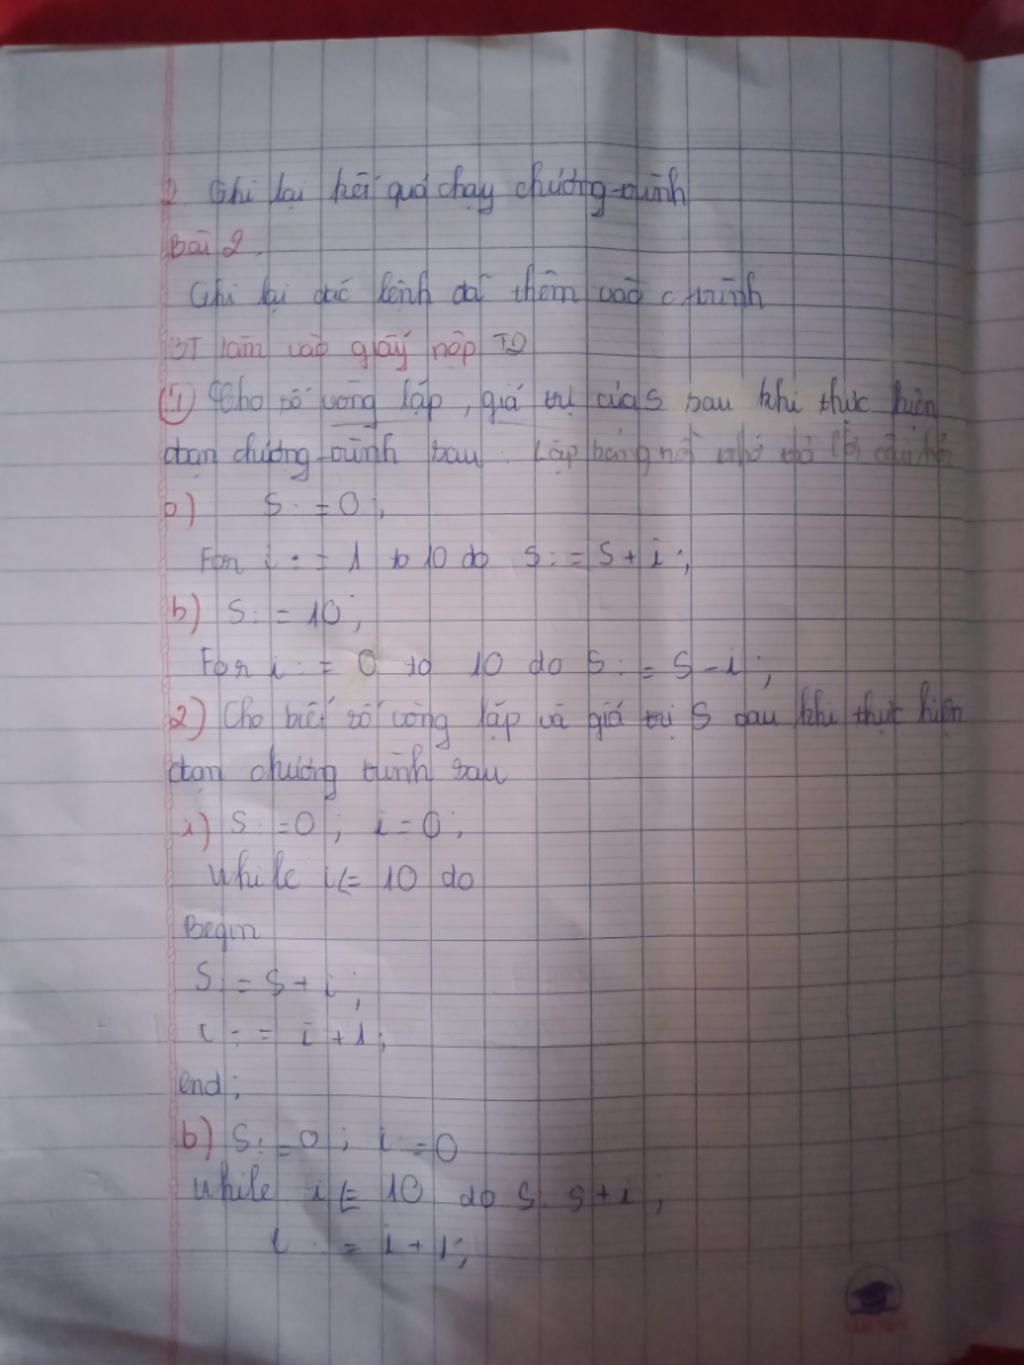 2. Ghi lại kết quả chạy chương trình
Bài 2.
Ghi lại các lệnh đã thêm vào c.trình
BT làm vào giấy nộp
① Cho số vòng lặp, giá trị của S sau khi thực hiện
đoạn chương trình sau. Lập bảng nhớ
a) S := 0;
For i := 1 to 10 do S := S + i;
b) S := 10;
For i := 0 to 10 do S := S - i;
2) Cho biết số vòng lặp và giá trị S sau khi thực hiện
đoạn chương trình sau
a) S := 0; i = 0;
While i <= 10 do
Begin
S := S + i;
i := i + 1;
end;
b) S := 0; i := 0
While i <= 10 do S: S + i;
i := i + 1;